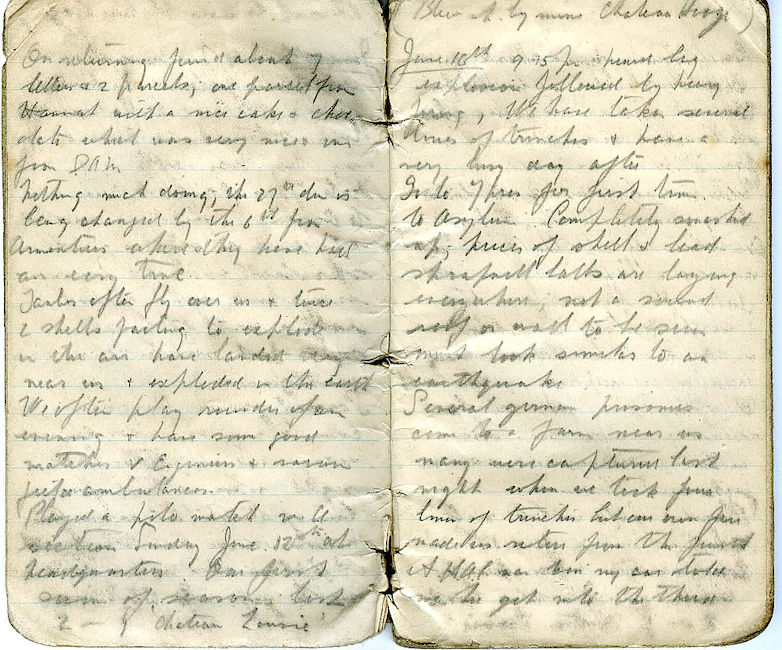 On returning found about 7
letters & 2 parcels, one parcel from
Hannah with a nice cake & choc
olate which was very nice one
from DAM
Nothing much doing, the 27th div is
being changed by the 6th from
Armentiers where they have had
an easy time
Taubes often fly over us & twice
2 shells failing to explode
in the air have landed very
near us & exploded in the earth
We often play rounders of an
evening & have some good
matches v Engineers & various
ambulances
Played a polo match v C
section Sunday June 12th at
headquarters Our first
of season lost
2 – Chateau
(Blew up by mine Chateau Hooge)
June 16th 9.35 p. heard big
explosion followed by heavy
firing, We have taken several
lines of trenches & have a
very busy day after
Go to Ypres for first time
to Asylum Completely smashed
up, pieces of shell & lead
shrapnell balls are laying
everywhere, not a sound
roof or wall to be seen
must look similar to an
earthquake
Several german prisoners
come to a farm near us
many were captured last
night when we took four
lines of trenches but our own fire
made us retire from the fourth
A HAC man in my car told
me he got into the third